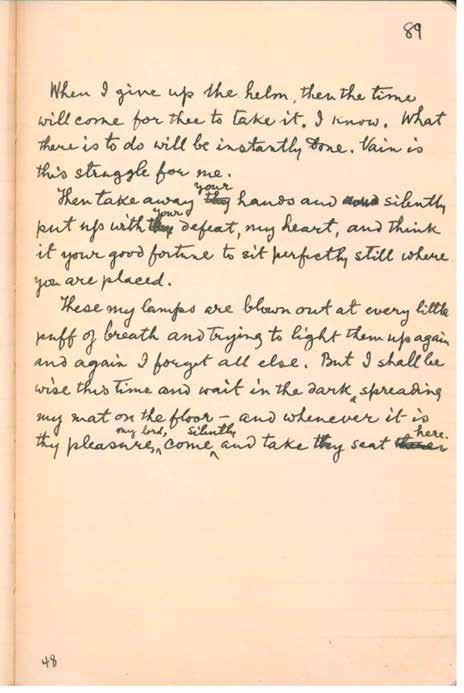 89
When I give up the helm, then the time
will come for thee to take it, I know. What
there is to do will be instantly done. Vain is
this struggle for me.
your
Then take away thy hands and and silently
your
put up with thy defeat, my heart, and think
it your good fortune to sit perfectly still where
you are placed.
These my lamps are blown out at every little
puff of breath and trying to light them up again
and again I forget all else. But I shall be
wise this time and wait in the dark, spreading
my mat on the floor – and whenever it is
my lord, silently here.
thy pleasure, come and take thy seat
48